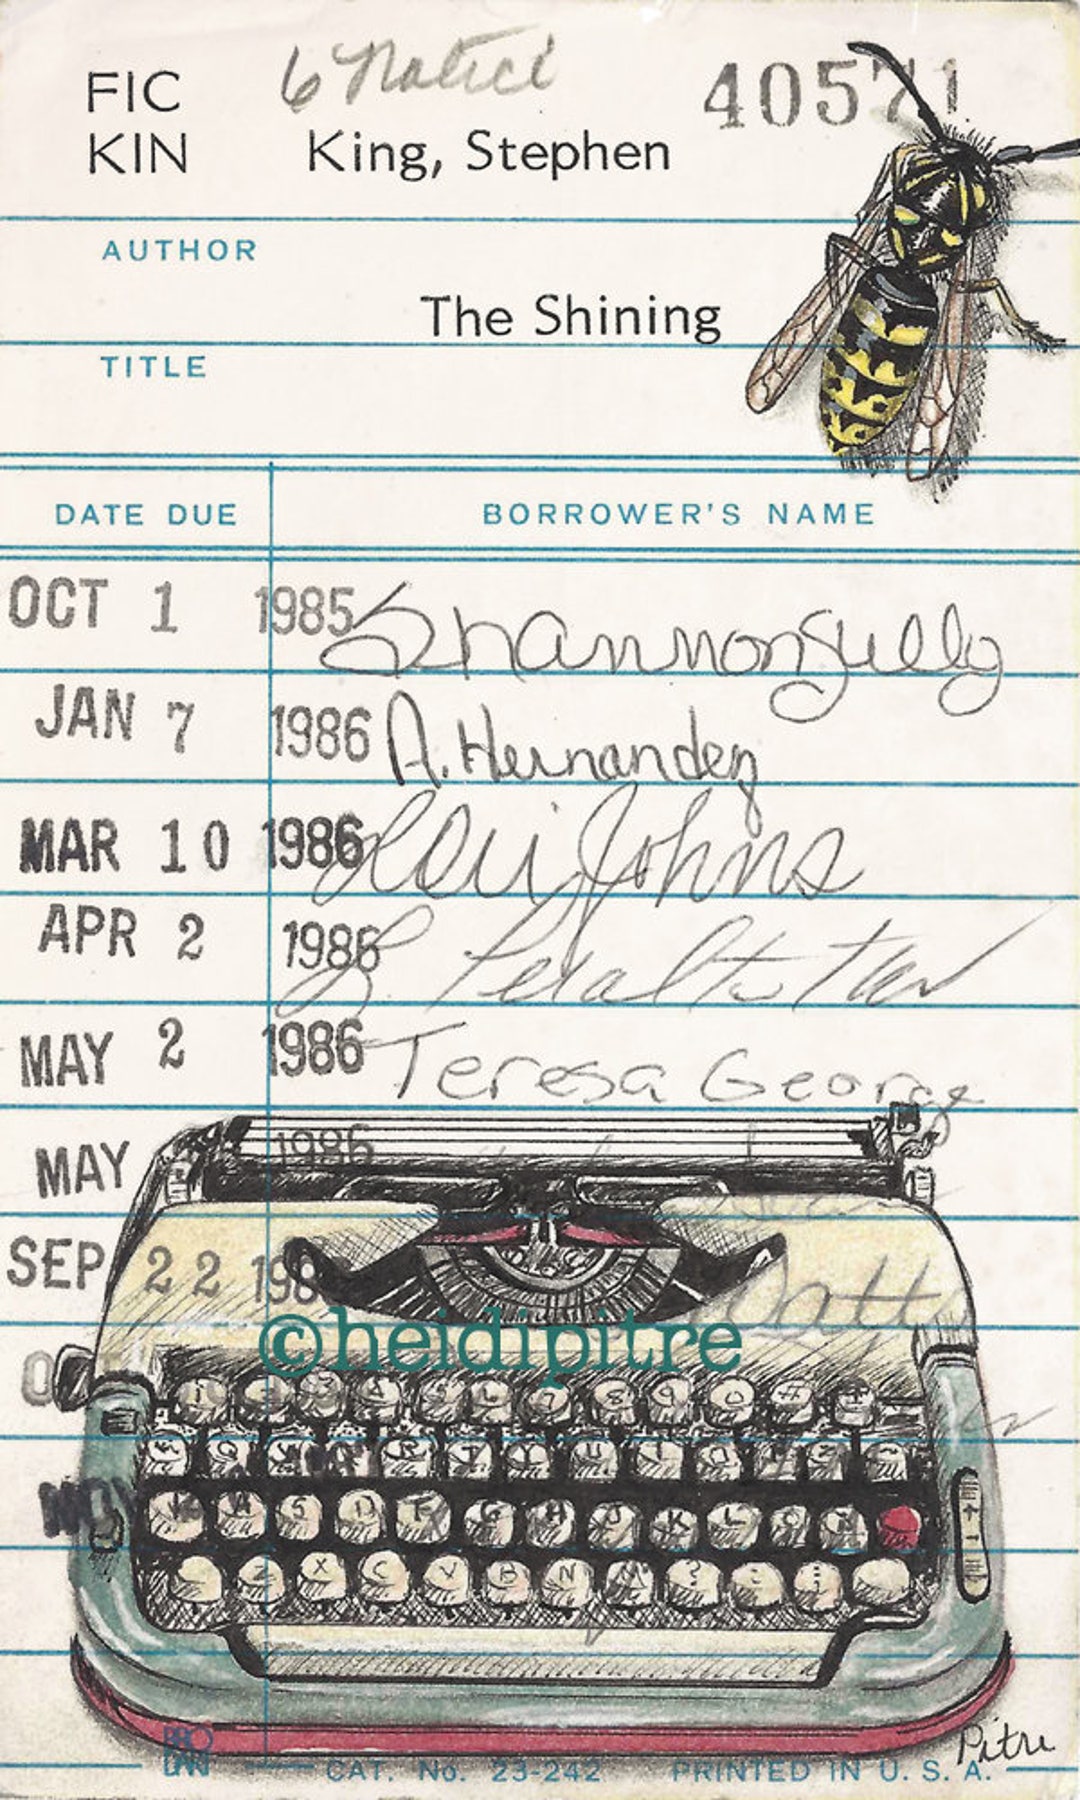 6 Notici
FIC
KIN
40571
King, Stephen
AUTHOR
The Shining
TITLE
DATE DUE BORROWER'S NAME
OCT 1 1985 Shannon Gully
JAN 7 1986 A. Hernandez
MAR 10 1986 Lori Johns
APR 2 1986
MAY 2 1986 Teresa George
MAY 1986
SEP 22 198
©heidipitre
Q
G H J K L
X C V B N
Pitre
BRO
DART
CAT. No. 23-242 PRINTED IN U. S. A.